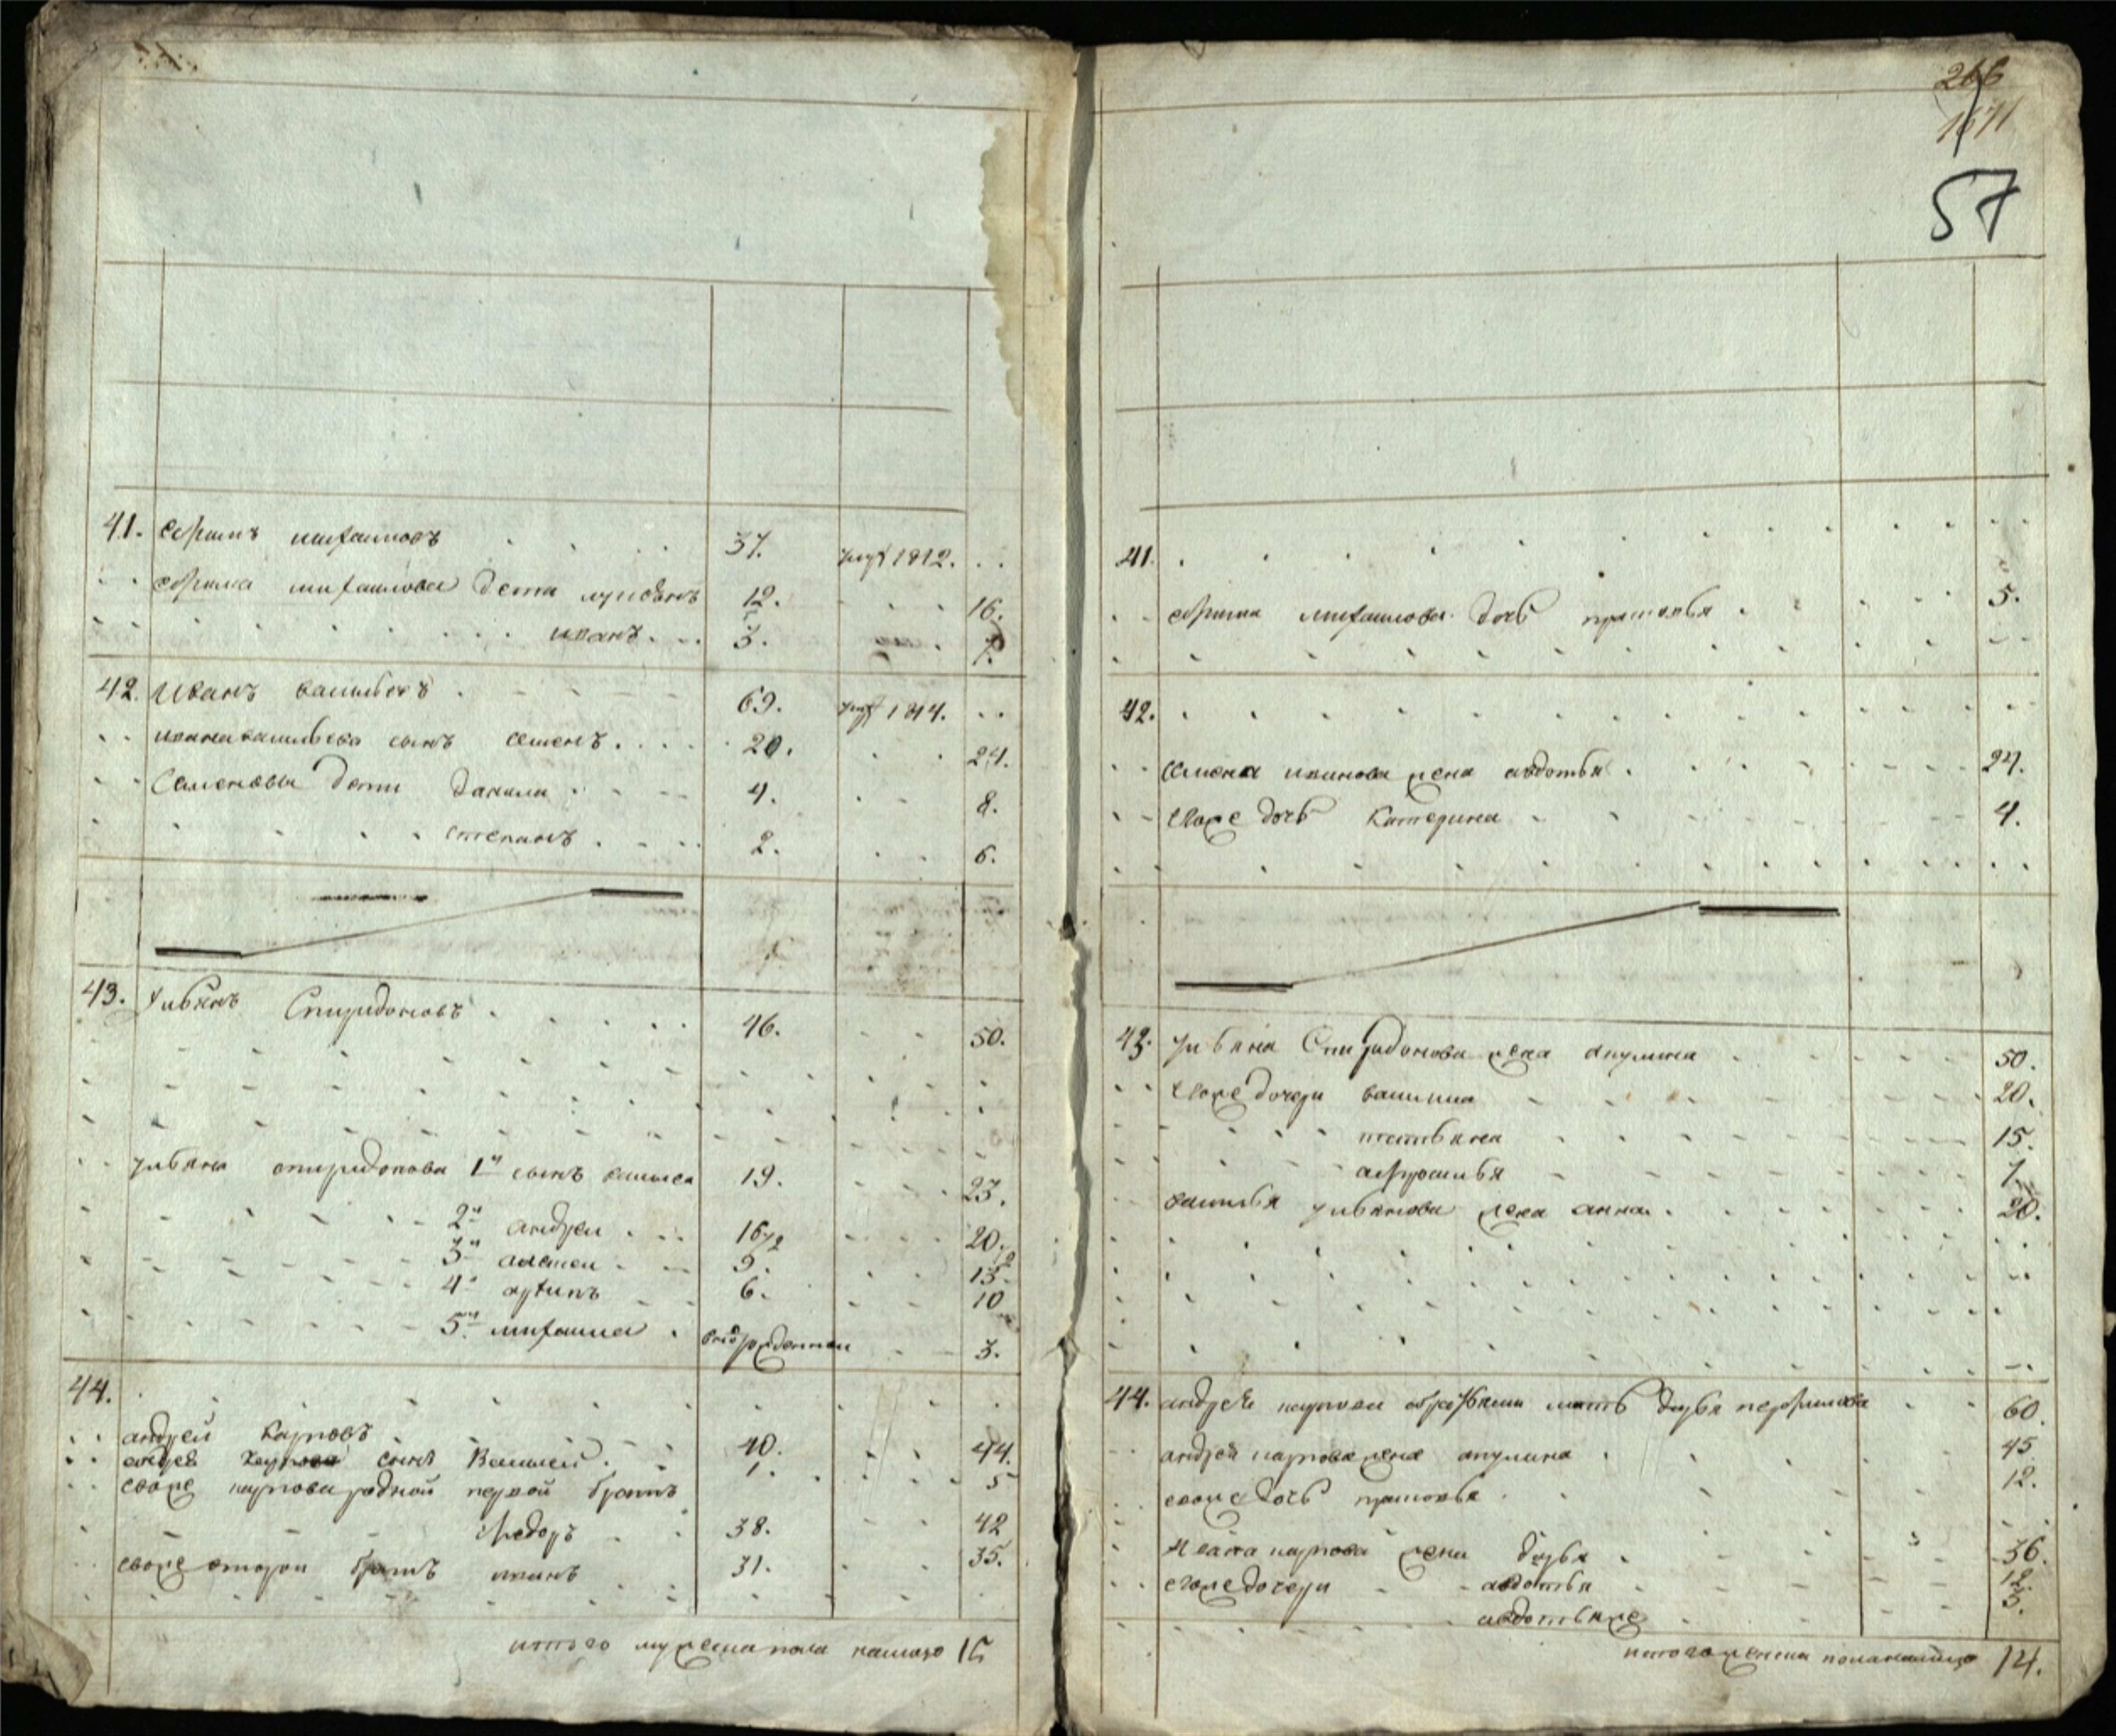 41. Ефимъ михаиловъ 37. умръ 1812.
ефима михаилова дети лукьянъ 12. 16.
иванъ 3. 7.
42. Иванъ васильевъ 69. умръ 1814.
ивана васильева сынъ семенъ 20. 24.
Семеновы дети данила 4. 8.
степанъ 2. 6.
43. Ульянъ Спиридоновъ 46. 50.
ульяна спиридонова 1й сынъ василеи 19. 23.
2й андреи 16 1/2 20 1/2
3й алексеи 9. 13.
4й архипъ 6. 10
5й михаила 3.
44.
андрей карповъ 40. 44.
андрея карпова сынъ Василей 1. 5
евоже карпова родной первой братъ
федоръ 38. 42
евоже второи братъ иванъ 31. 35.
итого мужеска пола налицо 15
266
57
41.
ефима михаилова дочь прасковья 5.
42.
семена иванова жена авдотья 24.
Евоже дочь катерина 4.
43. ульяна Спиридонова жена акулина 50.
Евоже дочери василиса 20.
татьяна 15.
афросинья 7.
василья ульянова жена анна 20.
44. андрея карпова мать дарья 60.
андрея карпова жена акулина 45
евоже дочь прасковья 12.
Ивана карпова жена дарья 36.
евоже дочери авдотья 12.
авдотья же 3.
итого женска пола налицо 14.